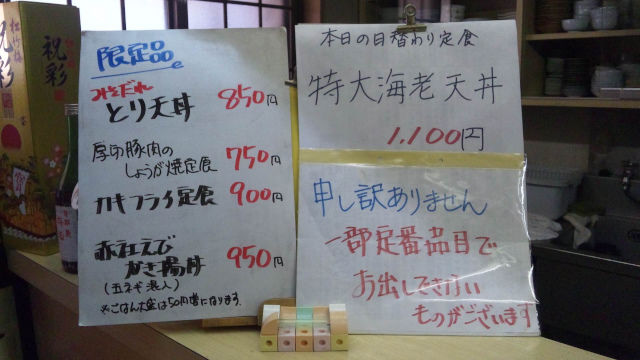 限定品
みそだれ
とり天丼 850円
厚切豚肉の
しょうが焼定食 750円
カキフライ定食 900円
赤社えび
かき揚丼 950円
(玉ネギ混入)
※ごはん大盛は50円増になります。
本日の日替わり定食
特大海老天丼
1,100円
申し訳ありません
一部定番品目で
お出しできない
ものがございます
祝彩